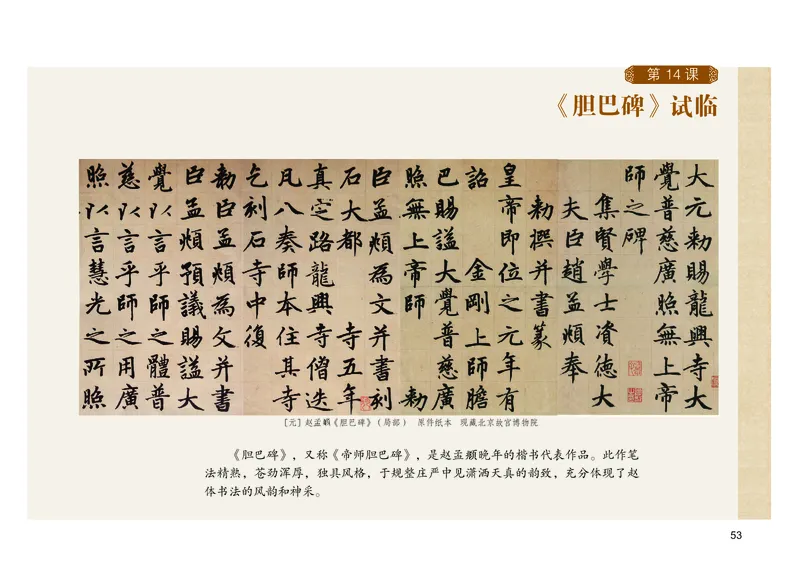 第 14 课
《胆巴碑》试临
大元勅賜龍興寺大
覺普慈廣照無上帝
師之碑
集賢學士資德大
夫臣趙孟頫奉
勅撰并書篆
皇帝即位之元年有
詔金剛上師膽
巴賜謚大覺普慈廣
照無上帝師勅
臣孟頫為文并書刻
石大都寺五年
真定路龍興寺僧迭
凡八奏師本住其寺
乞刻石寺中復
勅臣孟頫為文并書
臣孟頫預議賜謚大
覺以言乎師之體普
慈以言乎師之用廣
照以言慧光之所照
[元] 赵孟頫《胆巴碑》（局部） 原件纸本 现藏北京故宫博物院
《胆巴碑》，又称《帝师胆巴碑》，是赵孟頫晚年的楷书代表作品。此作笔
法精熟，苍劲浑厚，独具风格，于规整庄严中见潇洒天真的韵致，充分体现了赵
体书法的风韵和神采。
53